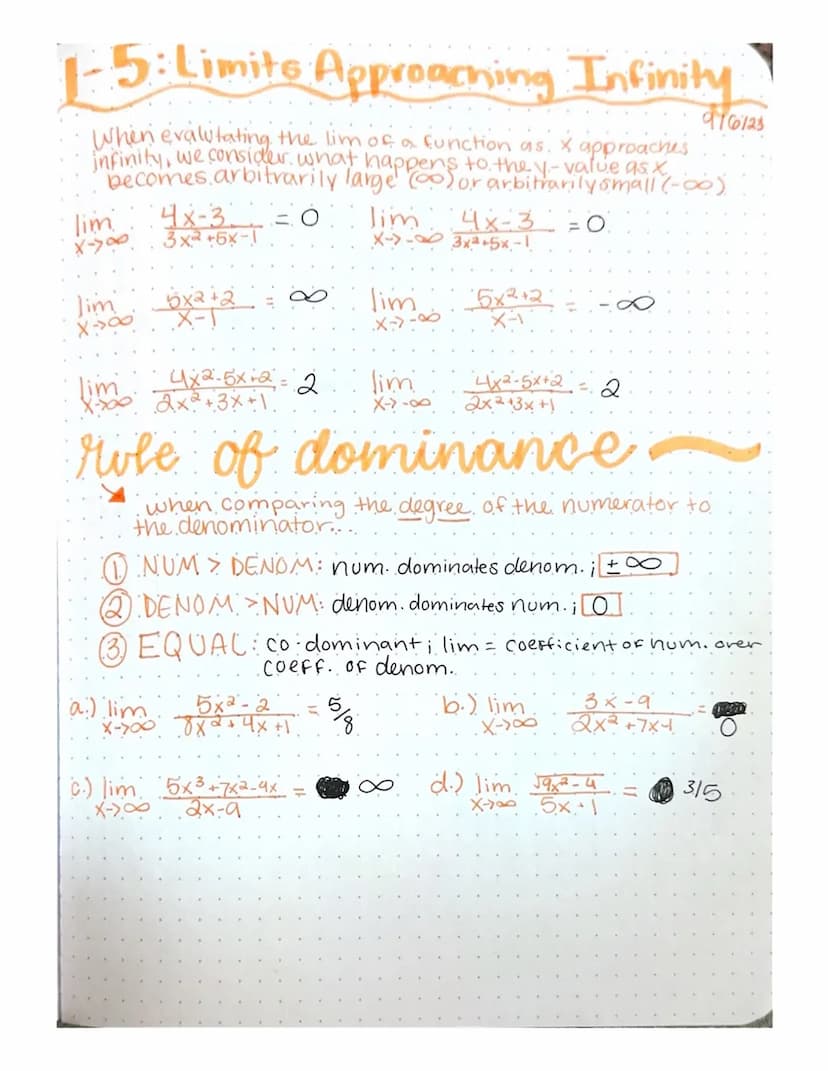 1-5: Limits Approaching Infinity
9/6/23
When evalutating the lim of a function as x approaches
infinity, we consider what happens to the y-value as x
becomes arbitrarily large (∞) or arbitrarily small (-∞)
lim x->∞ (4x-3)/(3x²+5x-1) = 0 lim x->-∞ (4x-3)/(3x²+5x-1) = 0
lim x->∞ (5x²+2)/(x-1) = ∞ lim x->-∞ (5x²+2)/(x-1) = -∞
lim x->∞ (4x²-5x+2)/(2x²+3x+1) = 2 lim x->-∞ (4x²-5x+2)/(2x²+3x+1) = 2
rule of dominance
when comparing the degree of the numerator to
the denominator...
① NUM > DENOM: num. dominates denom. ; ±∞
② DENOM > NUM: denom. dominates num. ; 0
③ EQUAL: co-dominant ; lim = coefficient of num. over
coeff. of denom.
a.) lim x->∞ (5x²-2)/(8x²+4x+1) = 5/8 b.) lim x->∞ (3x-9)/(2x²+7x-1) = 0
c.) lim x->∞ (5x³+7x²-9x)/(2x-9) = ∞ d.) lim x->∞ √(9x²-4)/(5x+1) = 3/5